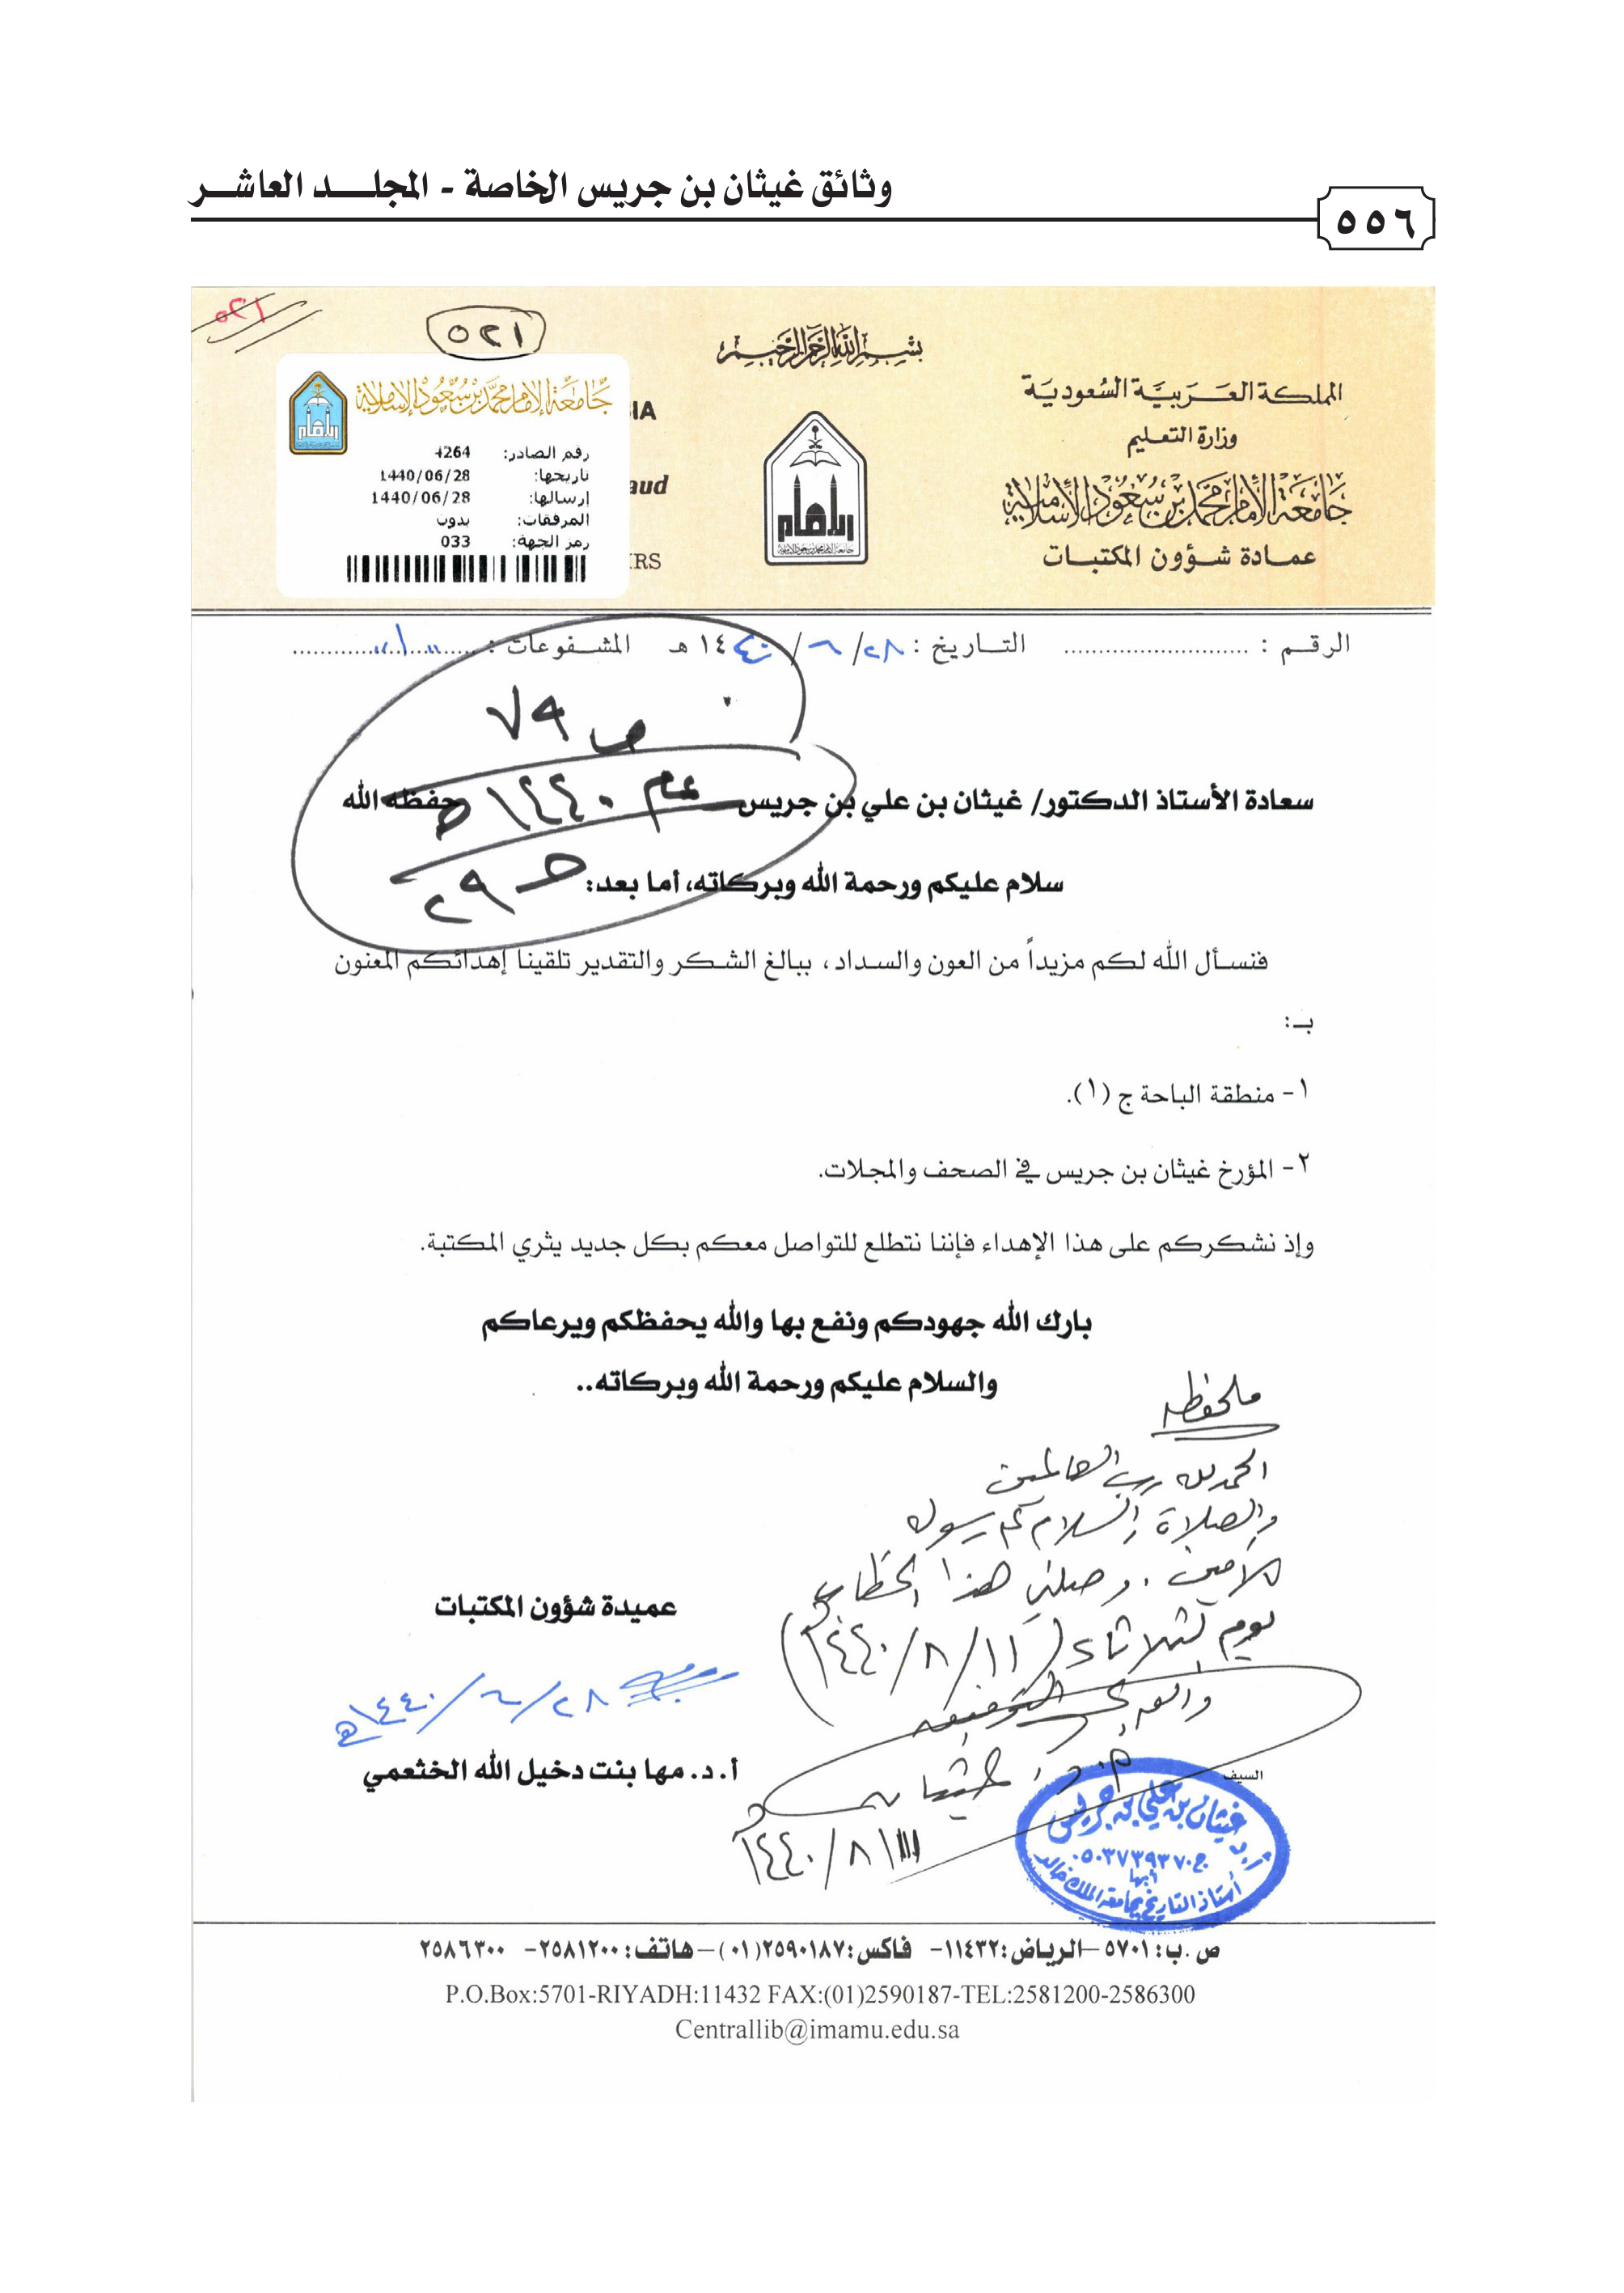 وثائق غيثان بن جريس الخاصة - المجلد العاشر
٥٥٦
٥٢١
٥٢١
بسم الله الرحمن الرحيم
المملكة العربية السعودية
وزارة التعليم
جامعة الإمام محمد بن سعود الإسلامية
عمادة شؤون المكتبات
الإمام
IA
aud
IRS
جامعة الإمام محمد بن سعود الإسلامية
رقم الصادر: 4264
تاريخها: 1440/06/28
إرسالها: 1440/06/28
المرفقات: بدون
رمز الجهة: 033
الرقم : التاريخ : ٢٨/ ٦/ ١٤٤٠ هـ المشفوعات :
ص ٧٩
عام ١٤٤٠ هـ
حـ ٢٩
سعادة الأستاذ الدكتور/ غيثان بن علي بن جريس حفظه الله
سلام عليكم ورحمة الله وبركاته، أما بعد:
فنسأل الله لكم مزيداً من العون والسداد، ببالغ الشكر والتقدير تلقينا إهدائكم المعنون
بـ:
١- منطقة الباحة ج (١).
٢- المؤرخ غيثان بن جريس في الصحف والمجلات.
وإذ نشكركم على هذا الإهداء فإننا نتطلع للتواصل معكم بكل جديد يثري المكتبة.
بارك الله جهودكم ونفع بها والله يحفظكم ويرعاكم
والسلام عليكم ورحمة الله وبركاته..
ملحوظه
الحمد لله رب العالمين
والصلاة والسلام على رسوله
الأمين . وصلني هذا الخطاب
يوم الثلاثاء (١٤٤٠/٨/١١)
والله ولي التوفيق
أ . د . غيثان
١٤٤٠/٨/١١
عميدة شؤون المكتبات
٢٨/ ٦/ ١٤٤٠هـ
أ. د. مها بنت دخيل الله الخثعمي
السيف
أ.د غيثان بن علي بن جريس
ج ٠٥٠٣٧٣٩٣٧٠
أبها
أستاذ التاريخ بجامعة الملك خالد
ص.ب: ٥٧٠١ –الرياض: ١١٤٣٢- فاكس: ٢٥٩٠١٨٧(٠١) – هاتف: ٢٥٨١٢٠٠- ٢٥٨٦٣٠٠
P.O.Box:5701-RIYADH:11432 FAX:(01)2590187-TEL:2581200-2586300
Centrallib@imamu.edu.sa